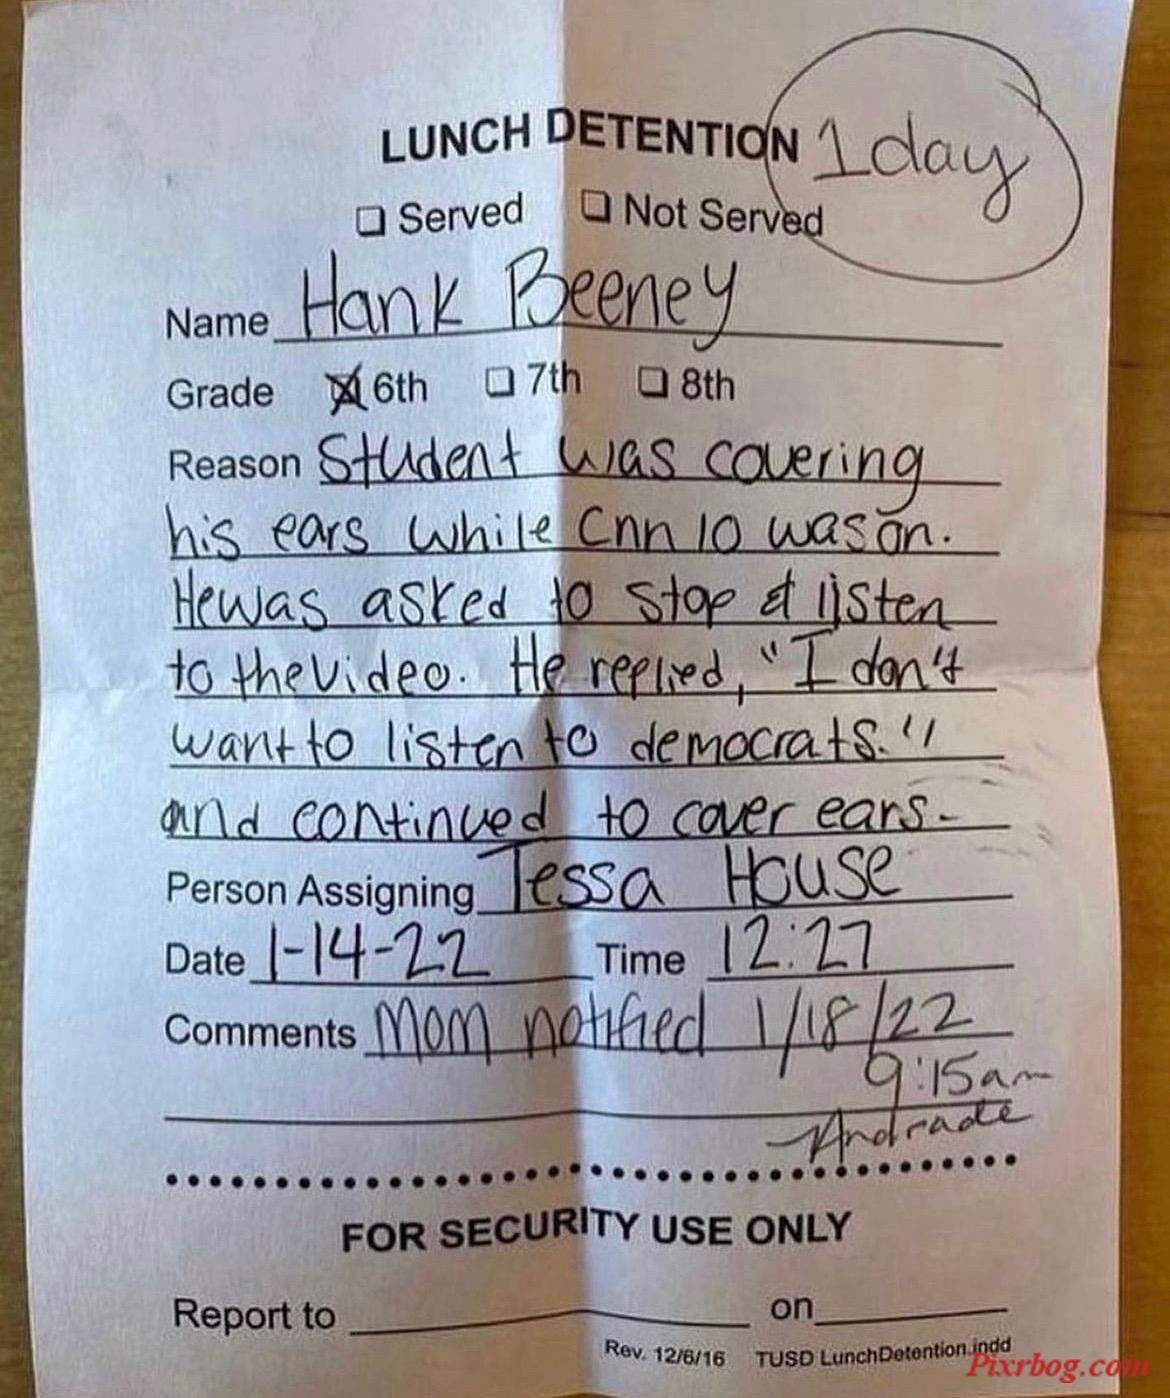 LUNCH DETENTION 1 day
❑ Served ❑ Not Served
Name Hank Beeney
Grade ❑ 6th ❑ 7th ❑ 8th
Reason Student was covering
his ears while Cnn 10 was on.
He was asked to stop & listen
to the video. He replied, "I don't
want to listen to democrats."
and continued to cover ears.
Person Assigning Tessa House
Date 1-14-22 Time 12:27
Comments Mom notified 1/18/22
9:15am
Andrade
FOR SECURITY USE ONLY
Report to on
Rev. 12/6/16 TUSD LunchDetention.indd
Pixrbog.com